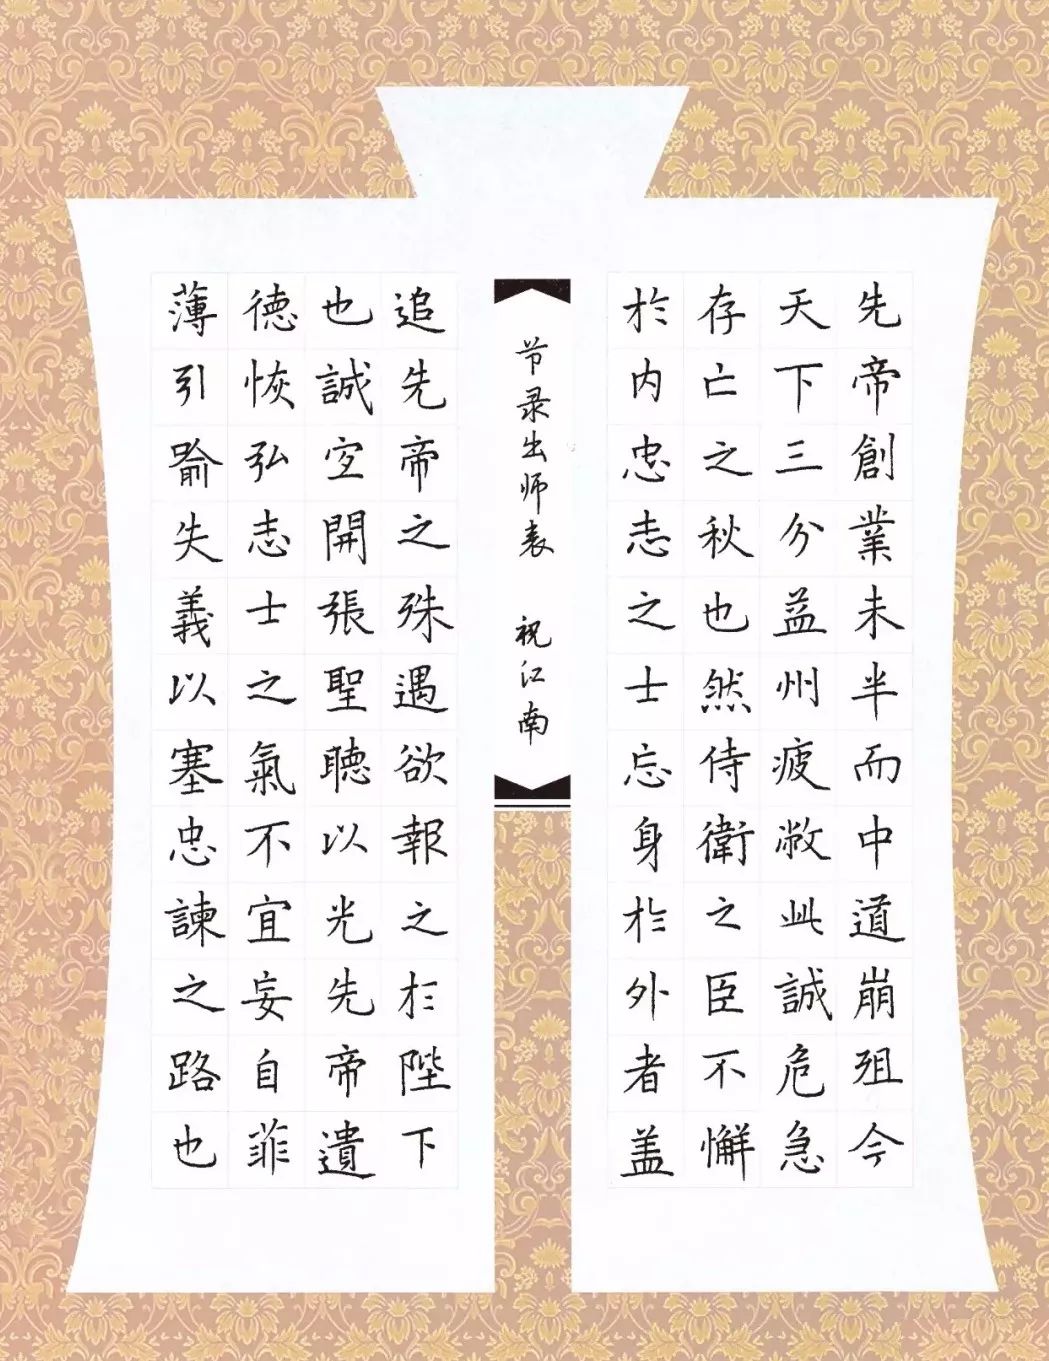 先帝創業未半而中道崩殂今
天下三分益州疲敝此誠危急
存亡之秋也然侍衛之臣不懈
於内忠志之士忘身於外者盖
追先帝之殊遇欲報之於陛下
也誠宜開張聖聽以光先帝遺
德恢弘志士之氣不宜妄自菲
薄引喻失義以塞忠諫之路也
节录出师表 祝江南